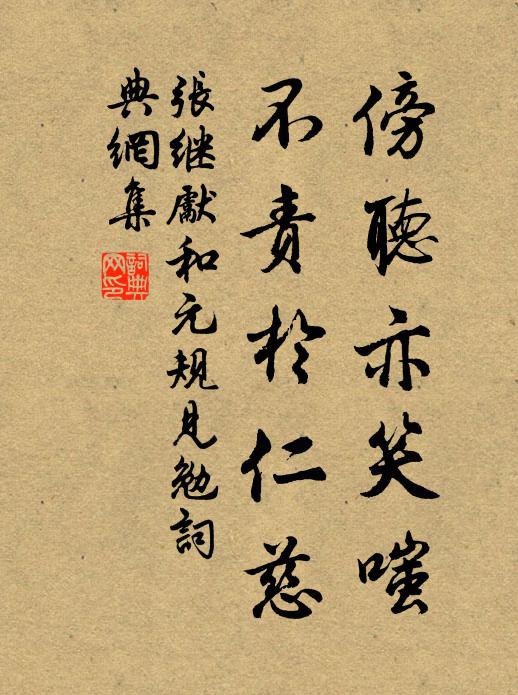 傍聽亦笑嗤
不責於仁慈
張继獻和元規見勉詞
典網集
詞典網印